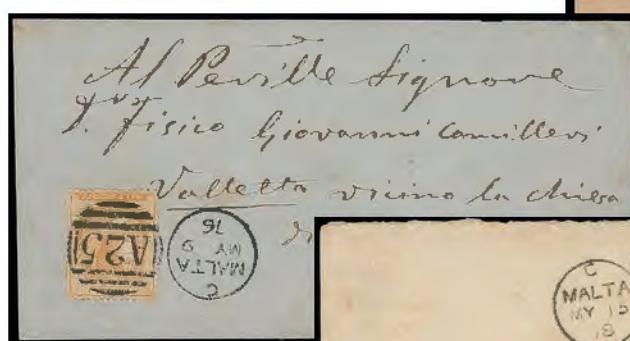 Al
Signore
fisico Giovanni Camilleri
Valletta vicino la chiesa
di
A25
C
MALTA
MY 9
76
C
MALTA
MY 15